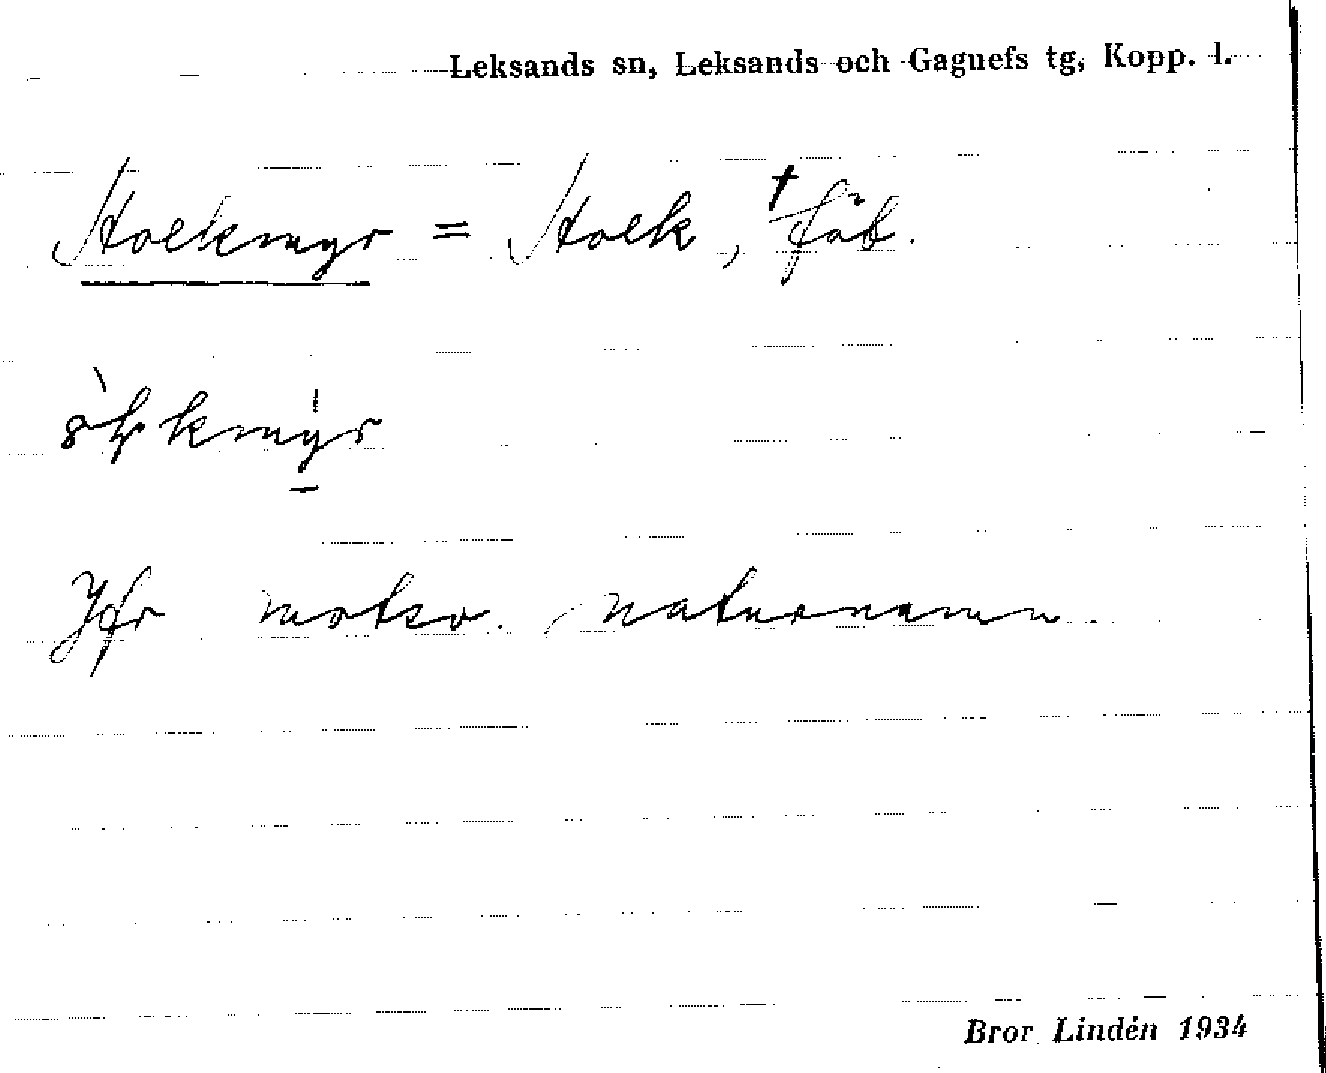 Leksands sn, Leksands och Gagnefs tg, Kopp. l.
Stockmyr = Stock, † fäb.
Jfr motsv. naturnamn.
Bror Lindén 1934